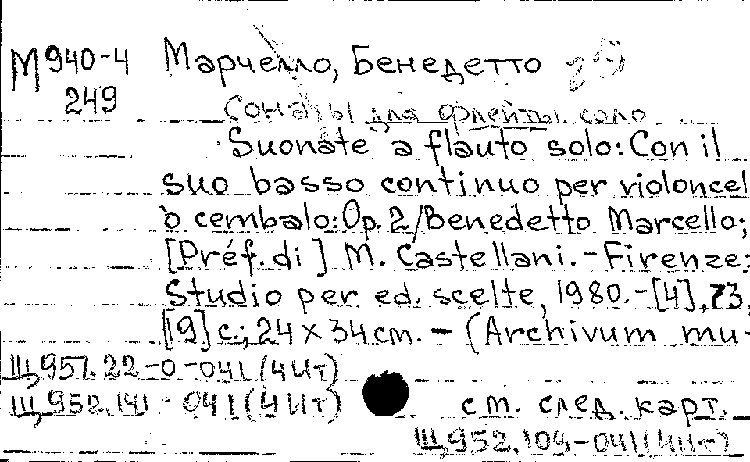 М940-4 Марчелло, Бенедетто
249
Сонаты для флейты соло
Suonate a flauto solo: Con il
suo basso continuo per violoncel
o cembalo: Op. 2/Benedetto Marcello;
[Préf. di] M. Castellani. - Firenze:
Studio per ed. scelte, 1980. - [4], 73,
[19] с.; 24 x 34 cm. - (Archivum mu-
Щ957.22-0-041(4Ит)
Щ952.141-041(4Ит) см. след. карт.
Щ952.104-041(4Ит)